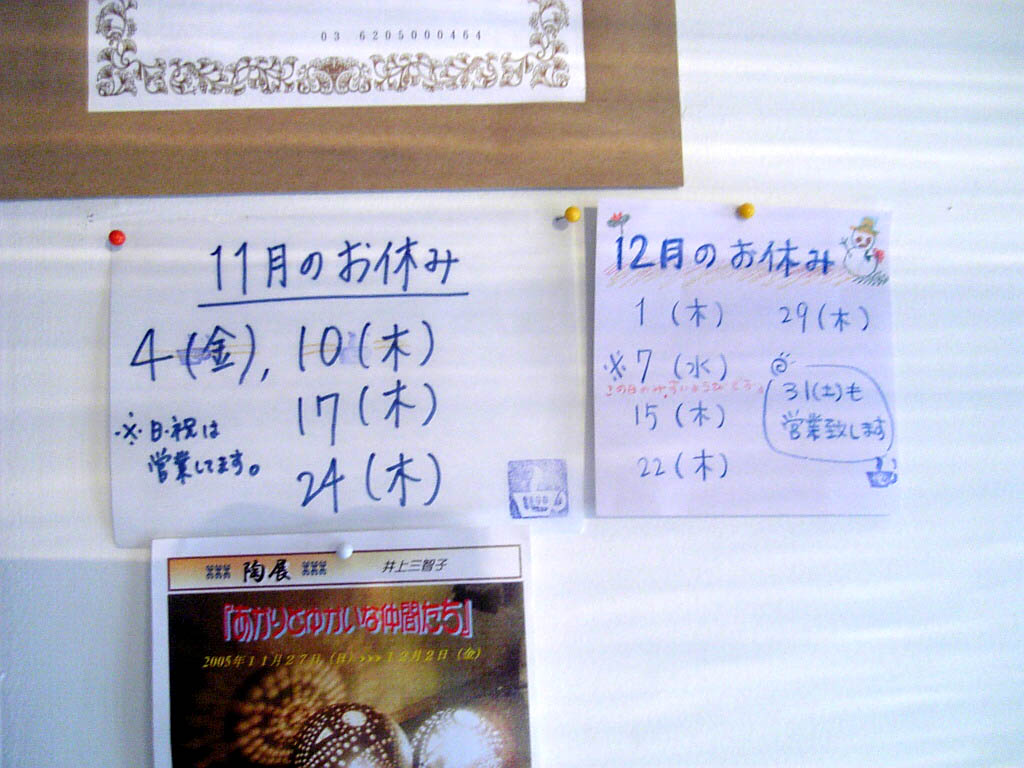 03 6205000464
11月のお休み
4(金), 10(木)
17(木)
24(木)
※日・祝は
営業してます。
12月のお休み
1(木) 29(木)
※7(水)
この日のみ、すいようびです。
15(木)
22(木)
31(土)も
営業致します
陶展 井上三智子
『あかりとゆかいな仲間たち』
2005年11月27日(日)>>>12月2日(金)